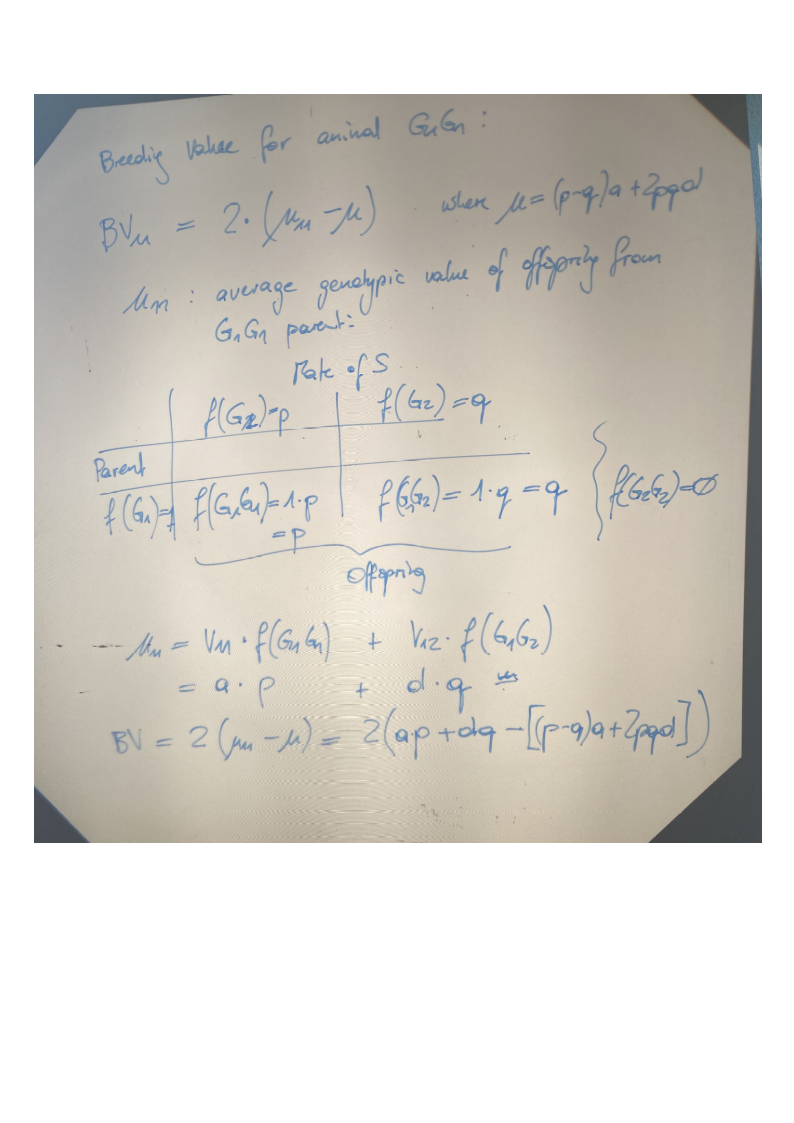 Breeding Value for animal G₁G₁ :
BV₁₁ = 2·(μ₁₁ - μ) where μ = (p-q)a + 2pqd
μ₁₁ : average genotypic value of offspring from
G₁G₁ parent:
Mate of S
f(G₁)=p f(G₂) = q
Parent
f(G₁)=1 f(G₁G₁)=1·p f(G₁G₂) = 1·q = q f(G₂G₂)=∅
=p
Offspring
μ₁₁ = V₁₁ · f(G₁G₁) + V₁₂ · f(G₁G₂)
= a · p + d · q
BV = 2(μ₁₁ - μ) = 2(ap + dq - [(p-q)a + 2pqd])